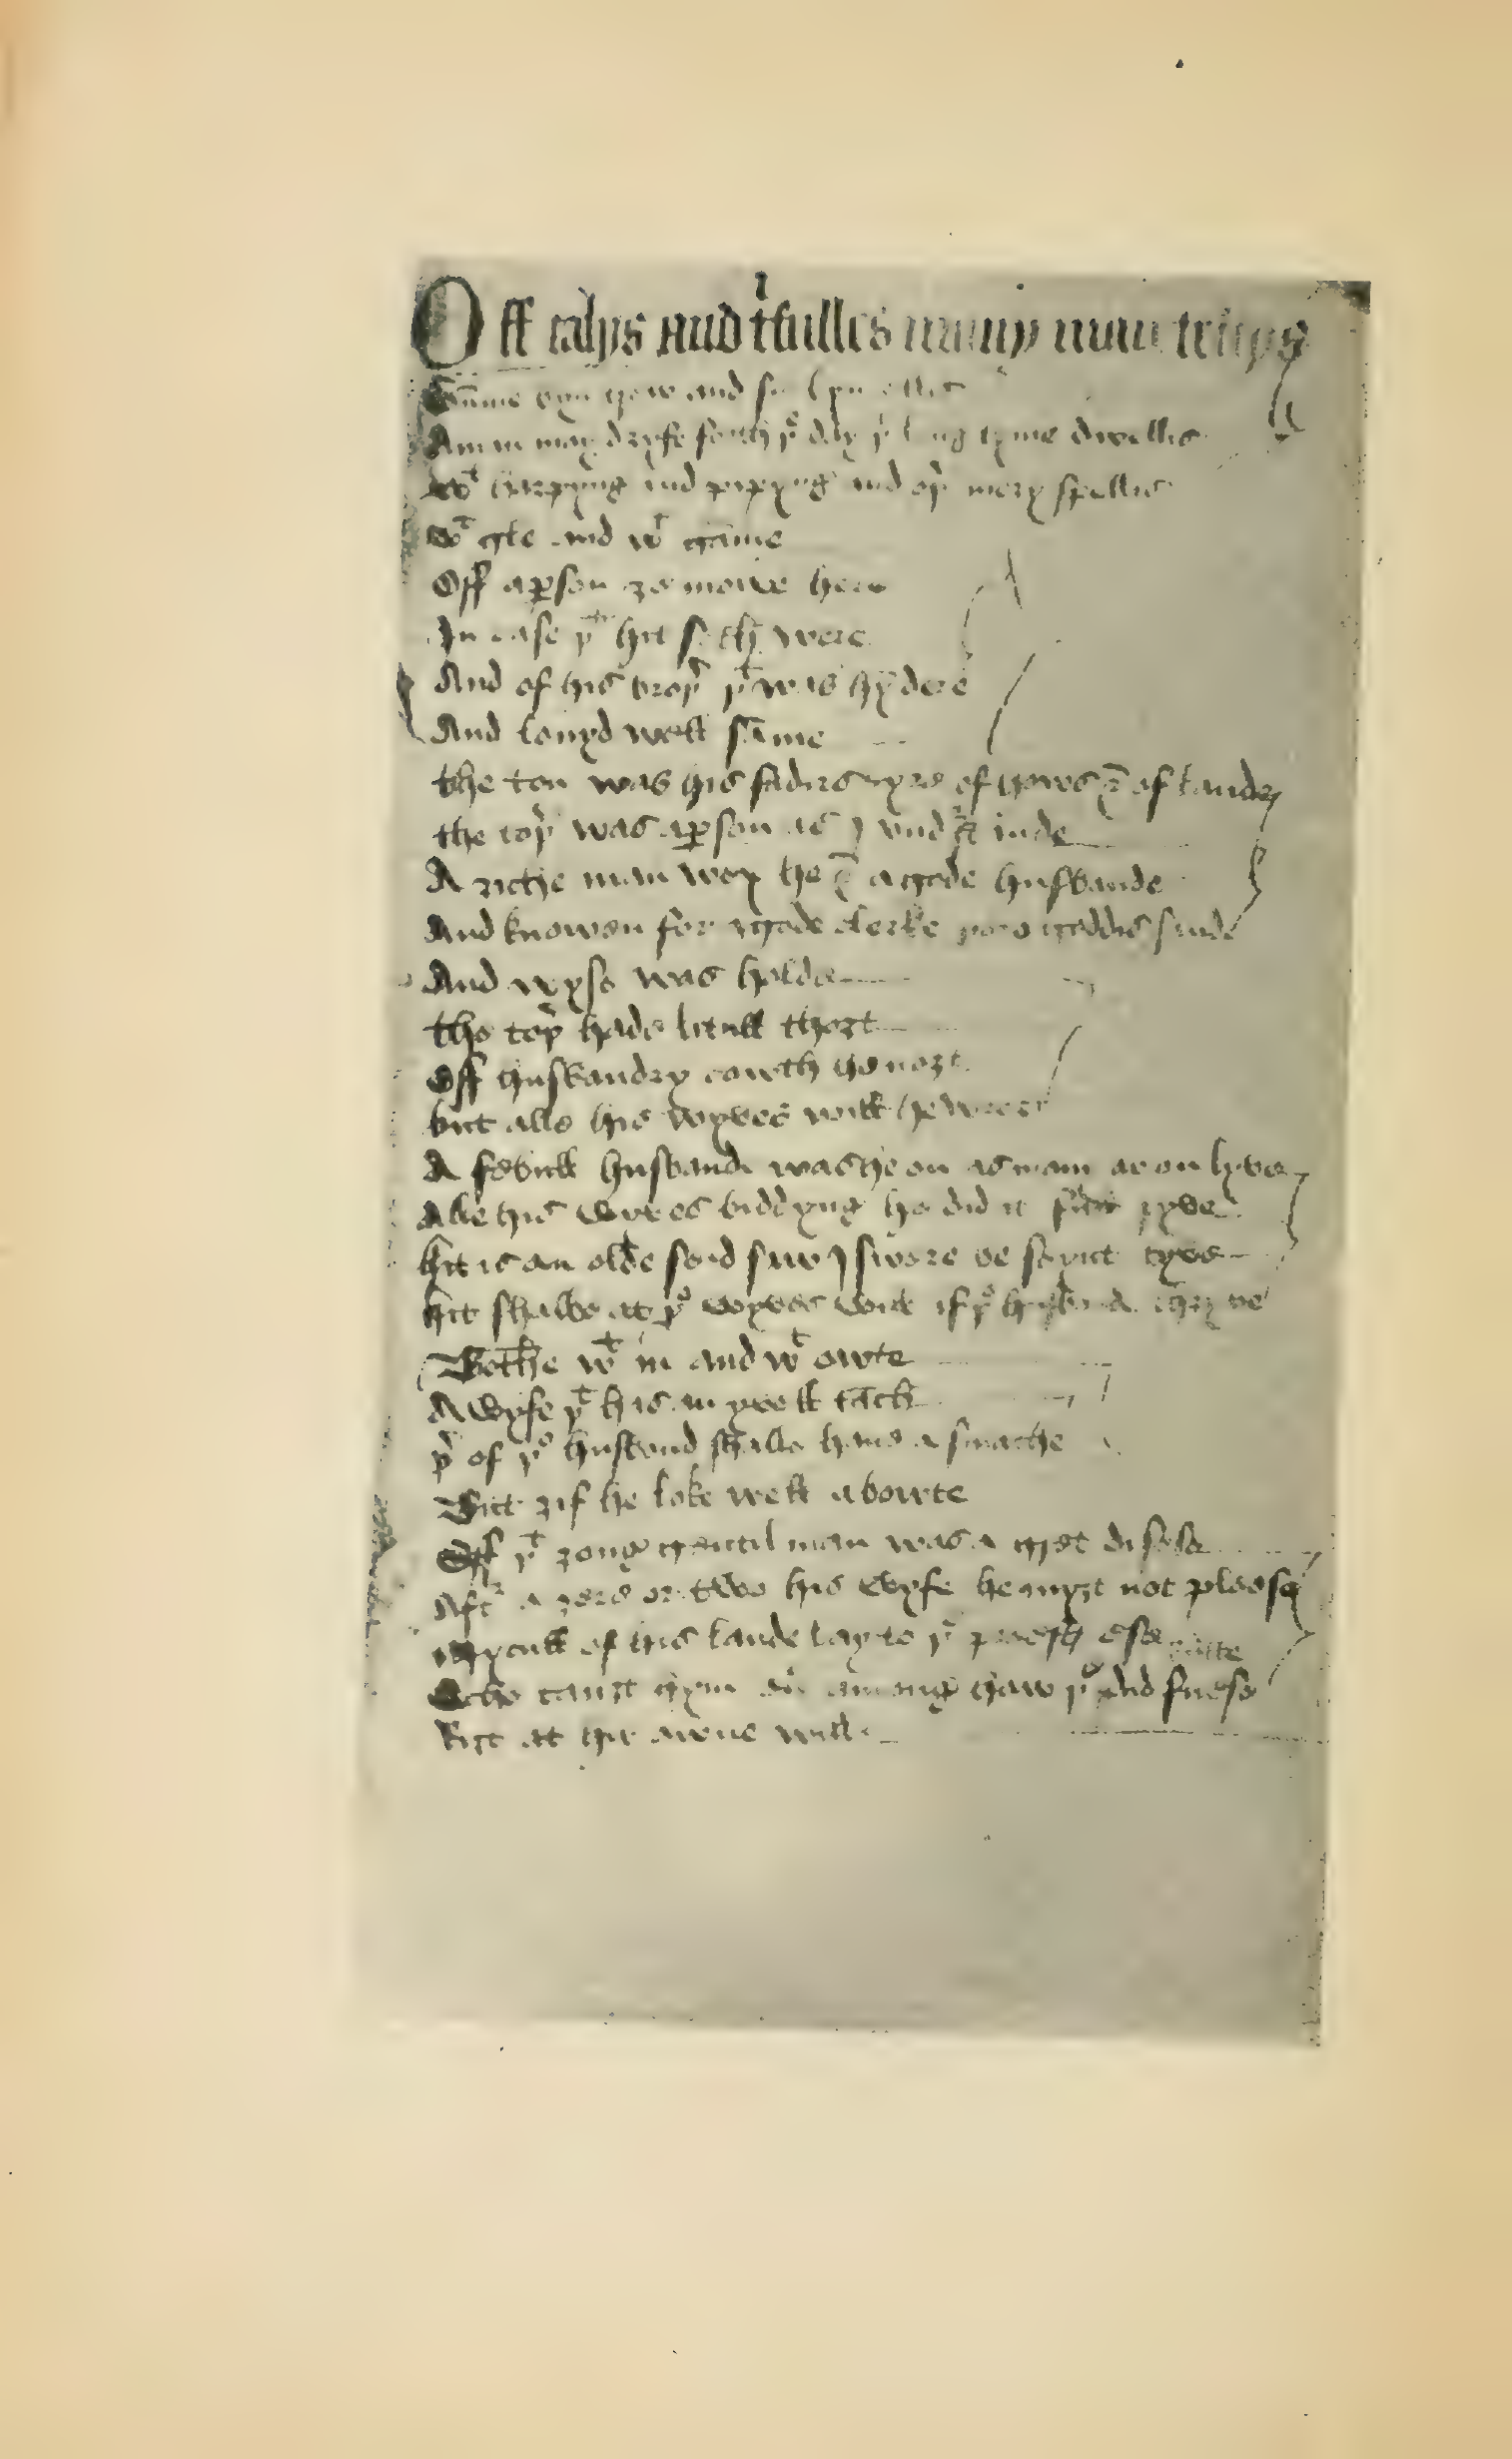 Off talys and trifulles many man tellys
Summe byn trew and sum byn ellis
A man may dryfe forth þe day þt long tyme dwellis
Wt harpyng and pipyng and oþr mery spellis
Wt gle and wt game
Off a person ȝe mowe here
In case þt hit soth were
And of his broþr þt was hym dere
And louyd well same
the ton was his fadirs eyre of howse & of lande
the toþr was a person as I vndrstande
A riche man wex he & a gode husbande
And knowen for a gode clerke þoro goddis sande
And wyse was holde
the toþr hade litull thoȝt
Off husbandry cowth he noȝt
but alle his wyves will he wroȝt
A febull husbande was he on as mony are on lyve
Alle his wyves biddyng he did it
hit is an olde seid saw I swore be seynt tyve
hit shalbe at þe wyves will if þe husbond thryve
Bothe wt in and wt owte
A wyfe þt has an yvell tach
þr of þe husbond shalle haue a smache
But ȝif he loke well abowte
Off þt ȝong gentilman was a gret disese
Aftr a ȝere or two his wyfe he myȝt not pleese
Mycull of his lande lay to þe preest ese
Scho tauȝt hym among how þe
Riȝt at hir owne will